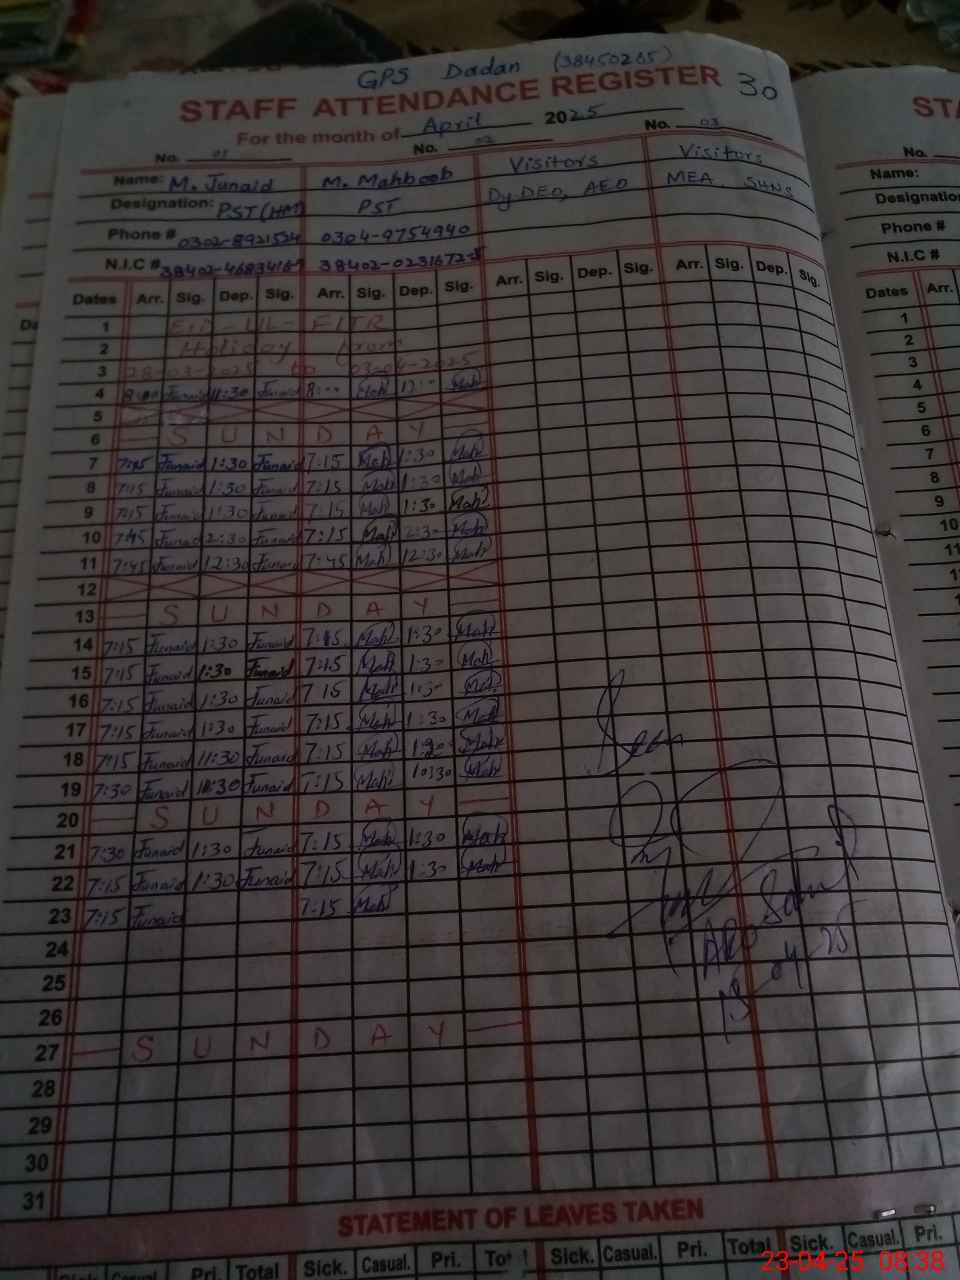 GPS Dadan (38450265)
STAFF ATTENDANCE REGISTER 30
For the month of April 2025
No. 01 No. 02 No. 03
Name: M. Junaid M. Mahboob Visitors Visitors
Designation: PST (HM) PST Dy.DEO, AEO MEA.
Phone # 0302-8921524 0304-9754940
N.I.C # 38402-0231672-5
Dates Arr. Sig. Dep. Sig. Arr. Sig. Dep. Sig. Arr. Sig. Dep. Sig. Arr. Sig. Dep. Sig.
1 EID-UL-FITR
2 Holiday from
3 28-03-2025 to 03-04-2025
4 8:00 Junaid 11:30 Junaid 8:00 Mah 12:00 Mah
5
6 SUNDAY
7 7:45 Junaid 1:30 Junaid 7:15 Mah 1:30 Mah
8 7:15 Junaid 1:30 Junaid 7:15 Mah 1:30 Mah
9 7:15 Junaid 1:30 Junaid 7:15 Mah 1:30 Mah
10 7:45 Junaid Junaid 7:15 Mah Mah
11 7:45 Junaid 12:30 Junaid 7:45 Mah 12:30 Mah
12
13 SUNDAY
14 7:15 Junaid 1:30 Junaid 7:15 Mah 1:30 Mah
15 7:15 Junaid 1:30 Junaid 7:15 Mah 1:30 Mah
16 7:15 Junaid 1:30 Junaid 7:15 Mah 1:30 Mah
17 7:15 Junaid 1:30 Junaid 7:15 Mah 1:30 Mah
18 7:15 Junaid 11:30 Junaid 7:15 Mah Mah
19 7:30 Junaid Junaid 7:15 Mah 10:30 Mah
20 SUNDAY
21 7:30 Junaid 1:30 Junaid 7:15 Mah 1:30 Mah
22 7:15 Junaid 1:30 Junaid 7:15 Mah 1:30 Mah
23 7:15 Junaid 7:15 Mah
24
25
26
27 SUNDAY
28
29
30
31
Seen
STATEMENT OF LEAVES TAKEN
Sick. Casual. Pri. Total Sick. Casual. Pri. Sick. Casual. Pri. Total Sick. Casual. Pri.
No.
Name:
Designatio
Phone #
N.I.C #
Dates Arr.
1
2
3
4
5
6
7
8
9
10
11
23-04-25 08:38